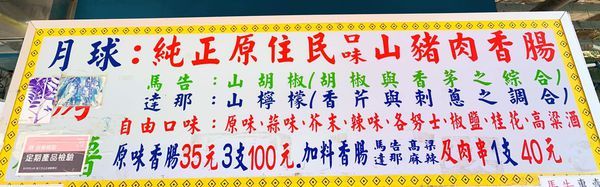 月球：純正原住民品味山豬肉香腸
馬告：山胡椒(胡椒與香茅之綜合)
達那：山檸檬(香芹與刺蔥之調合)
自由口味：原味、蒜味、芥末、辣味、各努士、椒鹽、桂花、高粱酒
定期產品檢驗
原味香腸35元3支100元.加料香腸 馬告 達那 高粱 麻辣 及肉串1支40元